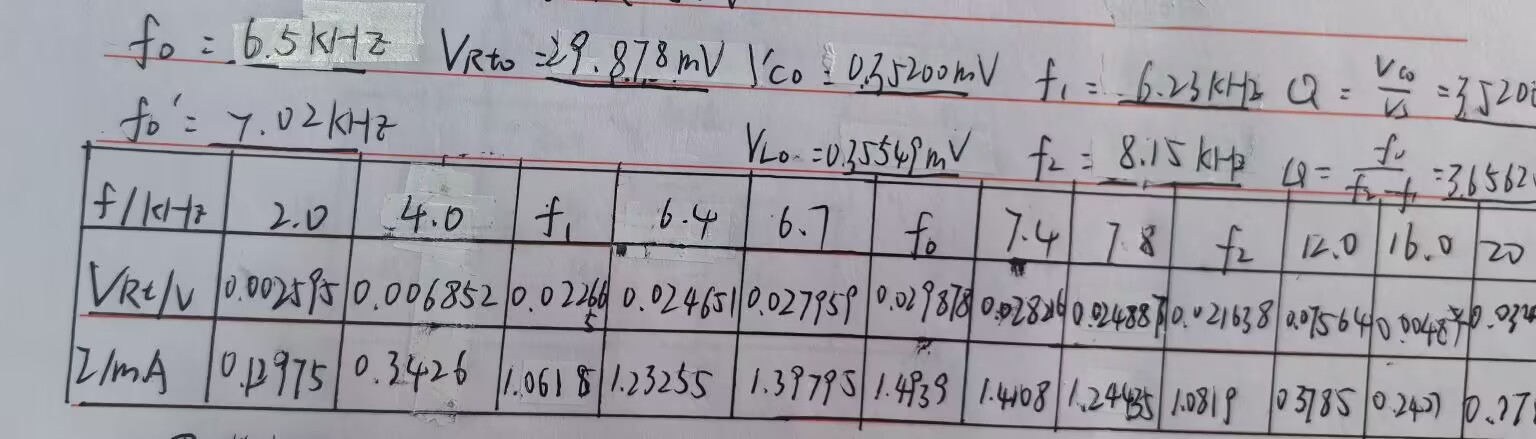 f₀ = 6.5KHz V_Rt₀ = 29.878mV V_C₀ = 0.35200mV f₁ = 6.23KHz Q = V_C₀/V_S = 3.520
f₀' = 7.02KHz V_L₀ = 0.35549mV f₂ = 8.15KHz Q = f₀/(f₂-f₁) = 3.6562
f/KHz 2.0 4.0 f₁ 6.4 6.7 f₀ 7.4 7.8 f₂ 12.0 16.0 20
V_Rt/V 0.002595 0.006852 0.022665 0.024651 0.027959 0.029878 0.028216 0.024887 0.021638 0.07564 0.00485
I/mA 0.12975 0.3426 1.0618 1.23255 1.39795 1.4939 1.4108 1.24435 1.0819 0.3785